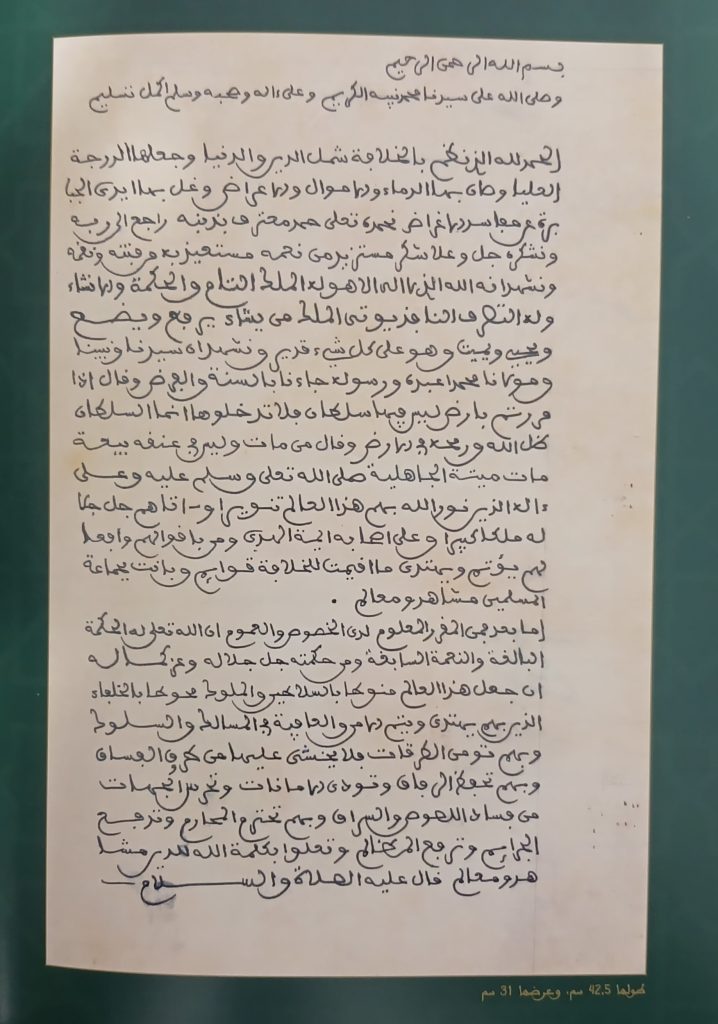 بسم الله الرحمن الرحيم
وصلى الله على سيدنا محمد نبيه الكريم وعلى ءاله وصحبه وسلم أكمل تسليم
الحمد لله الذي نظم بالخلافة شمل الدين والدنيا وجعلها الدرجة
العليا وصان بها الدماء والاموال والاعراض وغل بها ايدى الجبا
برة عن مفاسد الاغراض نحمده تعلى حمد معترف بذنبه راجع الى ربه
ونشكره جل وعلا شكر مستزيد من نعمه مستعيذ به من فتنته ونقمه
ونشهد انه الله الذي لا اله الا هو له الملك التام والحكمة والانشاء
وله التصرف النافذ يوتى الملك من يشاء يرفع ويضع
ويحيي ويميت وهو على كل شيء قدير ونشهد ان سيدنا ونبينا
ومولانا محمدا عبده ورسوله جاءنا بالسنة والفرض وقال اذا
مررتم بارض ليس فيها سلطان فلا تدخلوها انما السلطان
ظل الله ورمحه في الارض وقال من مات وليس في عنقه بيعة
مات ميتة الجاهلية صلى الله تعلى وسلم عليه وعلى
ءاله الذين نور الله بهم هذا العالم تنويرا وءاتاهم جل جلا
له ملكا كبيرا وعلى اصحابه ايمة الهدى ومن باقوالهم وافعا
لهم يؤتم ويهتدى ما اقيمت للخلافة قوايم وبانت بجماعة
المسلمين مشاهد ومعالم .
اما بعد فمن المقرر المعلوم لدى الخصوص والعموم ان الله تعلى له الحكمة
البالغة والنعمة السابغة ومن حكمته جل جلاله وعز كماله
ان جعل هذا العالم منوطا بالسلاطين والملوك محوطا بالخلفاء
الذين بهم يهتدى ويتم الامر والعافية في المسالك والسلوك
وبهم تومن الطرقات فلا يخشى عليها من طروق الفساق
وبهم تحفظ الرفاق وتودى الامانات وتحرس الجهات
من فساد اللصوص والسراق وبهم تحترم المحارم وتدفع
الجرايم وترفع المظالم وتعلوا بكلمة الله للدين مشا
هد ومعالم قال عليه الصلاة والسلام
طولها 42.5 سم، وعرضها 31 سم